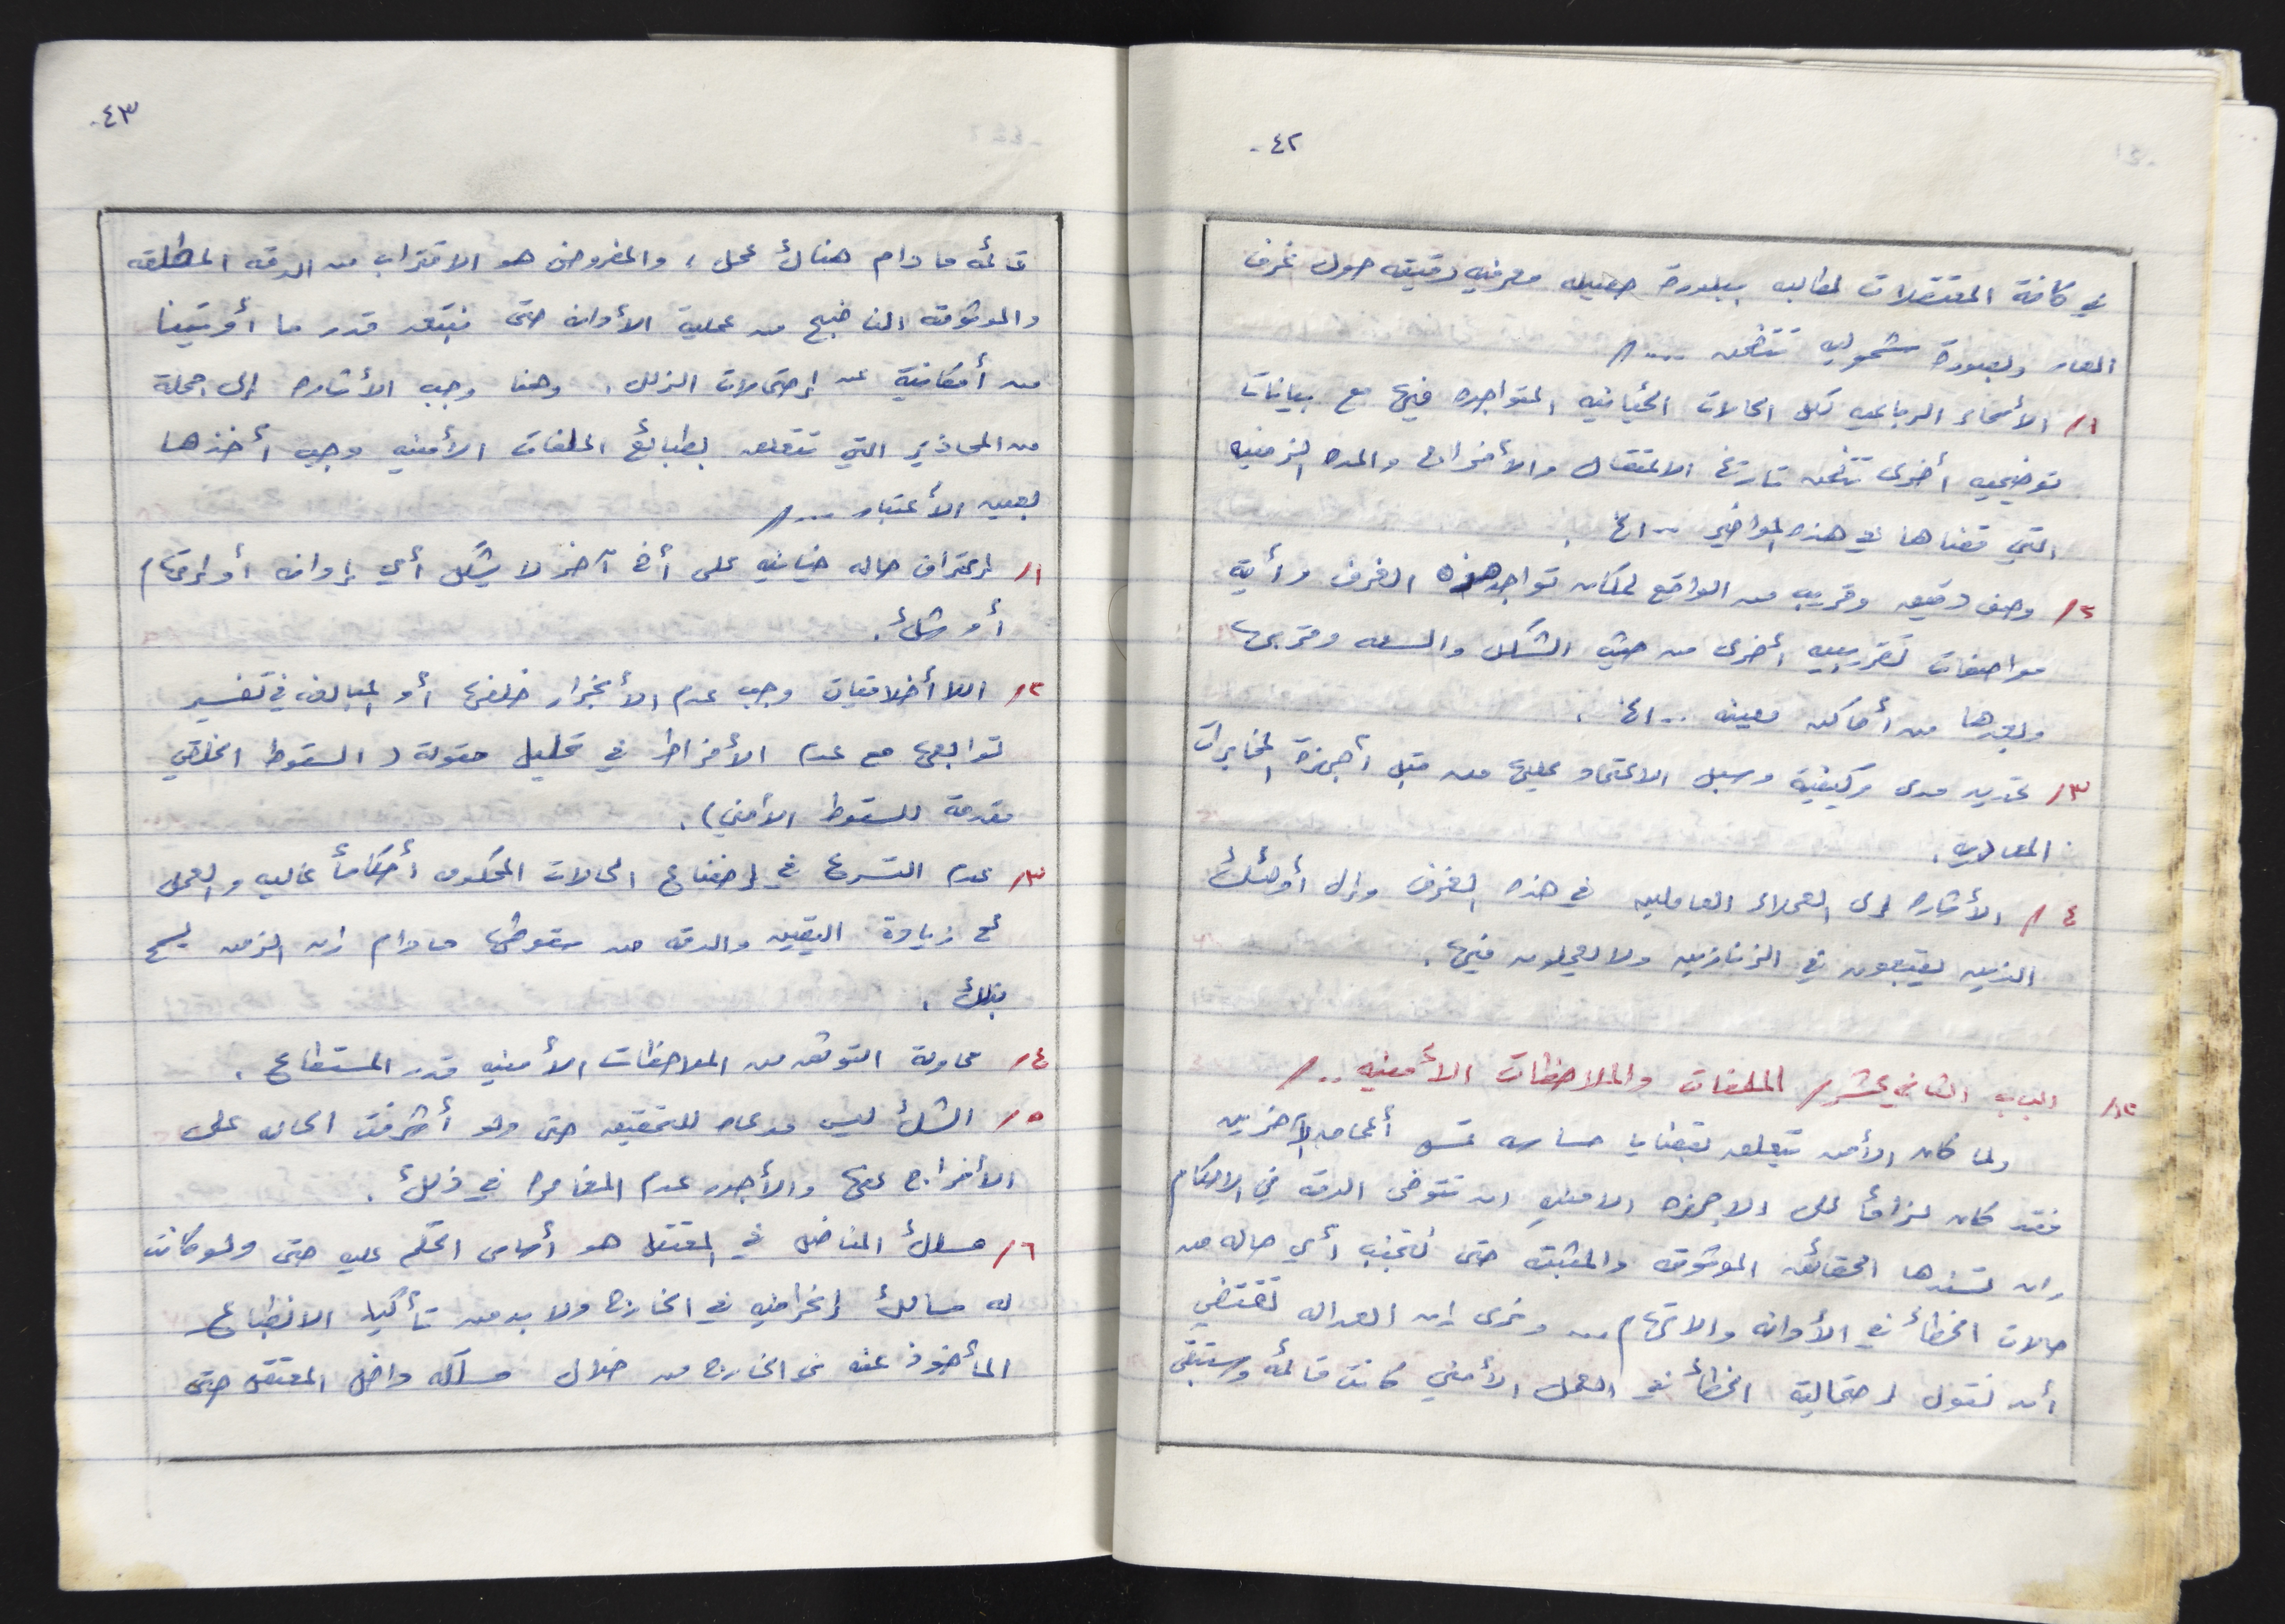 ٤٢-
في كافة المعتقلات لمطالبه ببلورة حصيله معرفيه دقيقه حول غرف
العار وبصورة شموليه تتضمن ..../
١/ الأسماء الرباعيه لكل الحالات الخيانيه المتواجده فيها مع بيانات
توضيحيه أخرى تتضمن تاريخ الاعتقال والأفراج والمده الزمنيه
التي قضاها في هذه المواضيع ... الخ .
٢/ وصف دقيق وقريب من الواقع لمكان تواجد هذه الغرف وأية
مواصفات تقريبيه أخرى من حيث الشكل والسعه وقربها
وبعدها من أماكن معينه ... الخ .
٣/ تحديد مدى وكيفية وسبل الاعتماد عليها من قبل أجهزة المخابرات
المعاديه .
٤/ الأشاره لدى العملاء العاملين في هذه الغرف وإلى أولئك
الذين يقبعون في الزنازين ولا يعملون فيها .
١٢/ الباب الثاني عشر/ الملفات والملاحظات الأمنيه .../
ولما كان الأمن يتعلق بقضايا حساسه تمس أعماق الآخرين
فقد كان لزاماً على الاجهزه الامنيه ان تتوخى الدقه في الاحكام
وان تسندها الحقائق الموثوقه والمثبته حتى نتجنب أي حاله من
حالات الخطأ في الأدانه والاتهام ... ونرى ان العداله تقتضي
أن نقول إحتمالية الخطأ في العمل الأمني كانت قائمة وستبقى
٤٣-
قائمة ما دام هنالك عمل ، والمفروض هو الاقتراب من الدقه المطلقه
والموثوقه الناضج من عملية الأدانه حتى نبتعد قدر ما أوتينا
من أمكانية عن إحتمالات الزلل . وهنا وجب الأشاره إلى جملة
من المحاذير التي تتعلق بطبائع الملفات الأمنيه وجب أخذها
بعين الأعتبار .../
١/ إعتراف حاله خيانيه على أخ آخر لا يشكل أي إدانه أو إتهام
أو شك .
٢/ اللا أخلاقيات وجب عدم الأنجرار خلفها أو المبالغه في تفسير
توابعها مع عدم الأفراط في تحليل مقولة ( السقوط الخلقي
مقدمة للسقوط الأمني ) .
٣/ عدم التسرع في إخضاع الحالات المحكومه أحكاماً عاليه والعمل
مع زيادة اليقين والدقه من سقوطها ما دام ان الزمن يسمح
بذلك .
٤/ محاولة التوثق من الملاحظات الأمنيه قدر المستطاع .
٥/ الشك ليس مدعاه للتحقيق حتى ولو أشرفت الحاله على
الأفراج عنها والأجدر عدم المغامره في ذلك .
٦/ مسلك المناضل في المعتقل هو أساس الحكم عليه حتى ولو كانت
له مسالك إنحرافيه في الخارج ولا بد من تأكيد الانطباع
المأخوذ عنه في الخارج من خلال مسلكه داخل المعتقل حتى